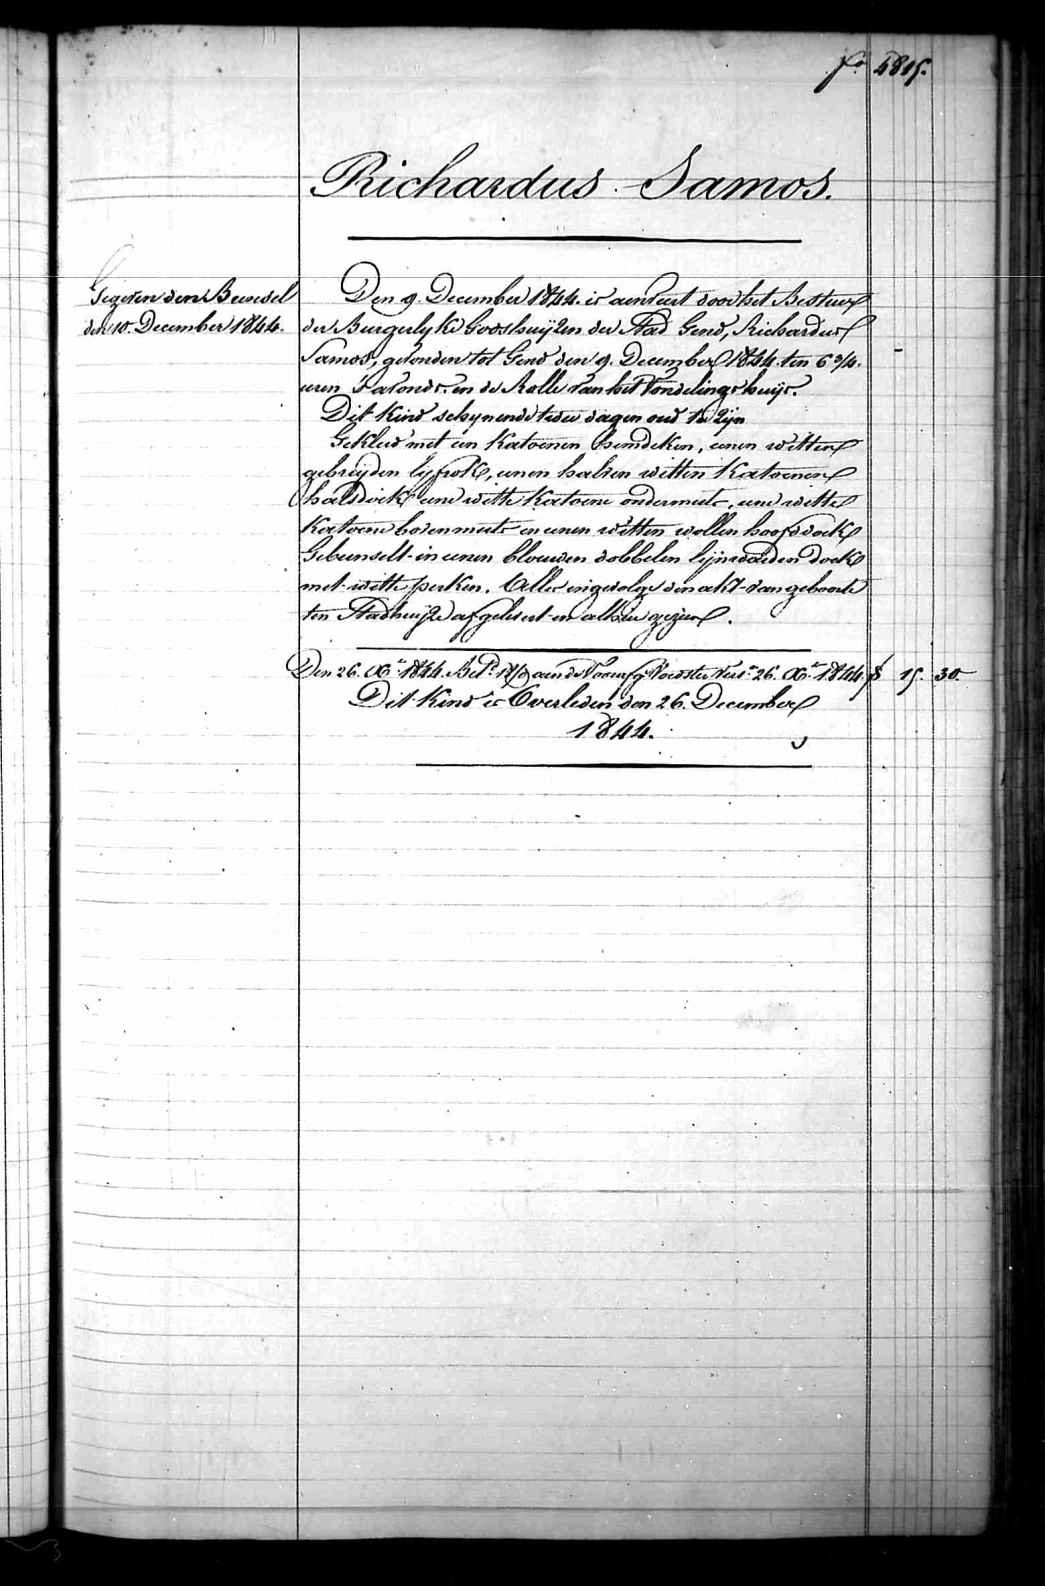 fo. 4815.
Richardus Samos.
Gegeven den Bundsel
den 10. December 1844.
Den 9. December 1844. is aenveert door het Bestuer
der Burgerlyke Gooshuijzen der Stad Gend, Richardus
Samos, gevonden tot Gend den 9. December 1844. ten 6 3/4.
uren s'avonds. in de Rolle van het Vondelingshuijs.
Dit Kind schynende twee dagen oud te zijn
Gekleed met een Katoenen hemdeken, eenen witten
gebreijden lyfrok, eenen halven witten Katoenen
halsdoek, eene witte Katoene ondermuts, eene witte
Katoene bovenmuts en eenen witten wollen hoofddoek
Gebunselt in eenen blauwen dobbelen lijnwaeden doek
met witte perken. Alles ingevolge den akt van geboorte
ten Stadhuijze afgelevert en alhier gezien.
Den 26. Xbr. 1844. Bet. aen de Voedster 26. Xbr. 1844. 15. 30.
Dit Kind is Overleden den 26. December
1844.